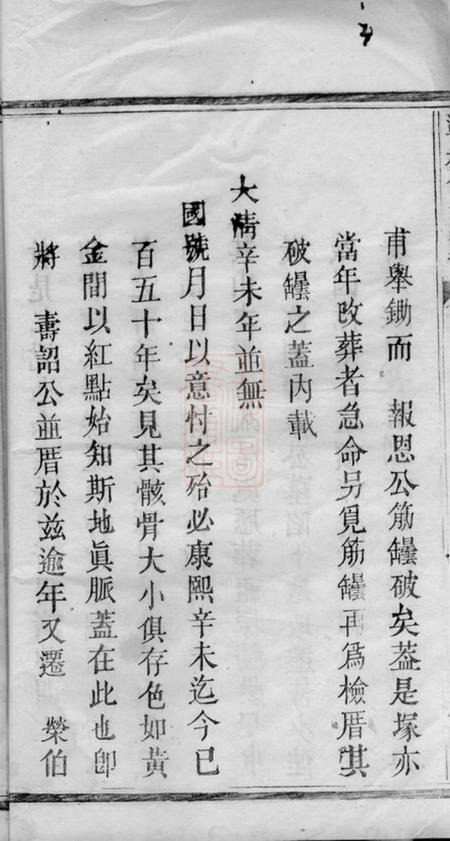 甫舉鋤而　報恩公筋罎破矣葢是塚亦
當年改葬者急命另覓筋罎再爲檢厝其
破罎之蓋內載
大清辛未年並無
國號月日以意忖之殆必康熙辛未迄今已
百五十年矣見其骸骨大小俱存色如黃
金間以紅點始知斯地眞脈蓋在此也卽
將　壽詔公並厝於兹逾年又遷　榮伯